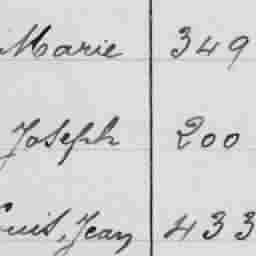 Marie 349
Joseph 200
Jean 433